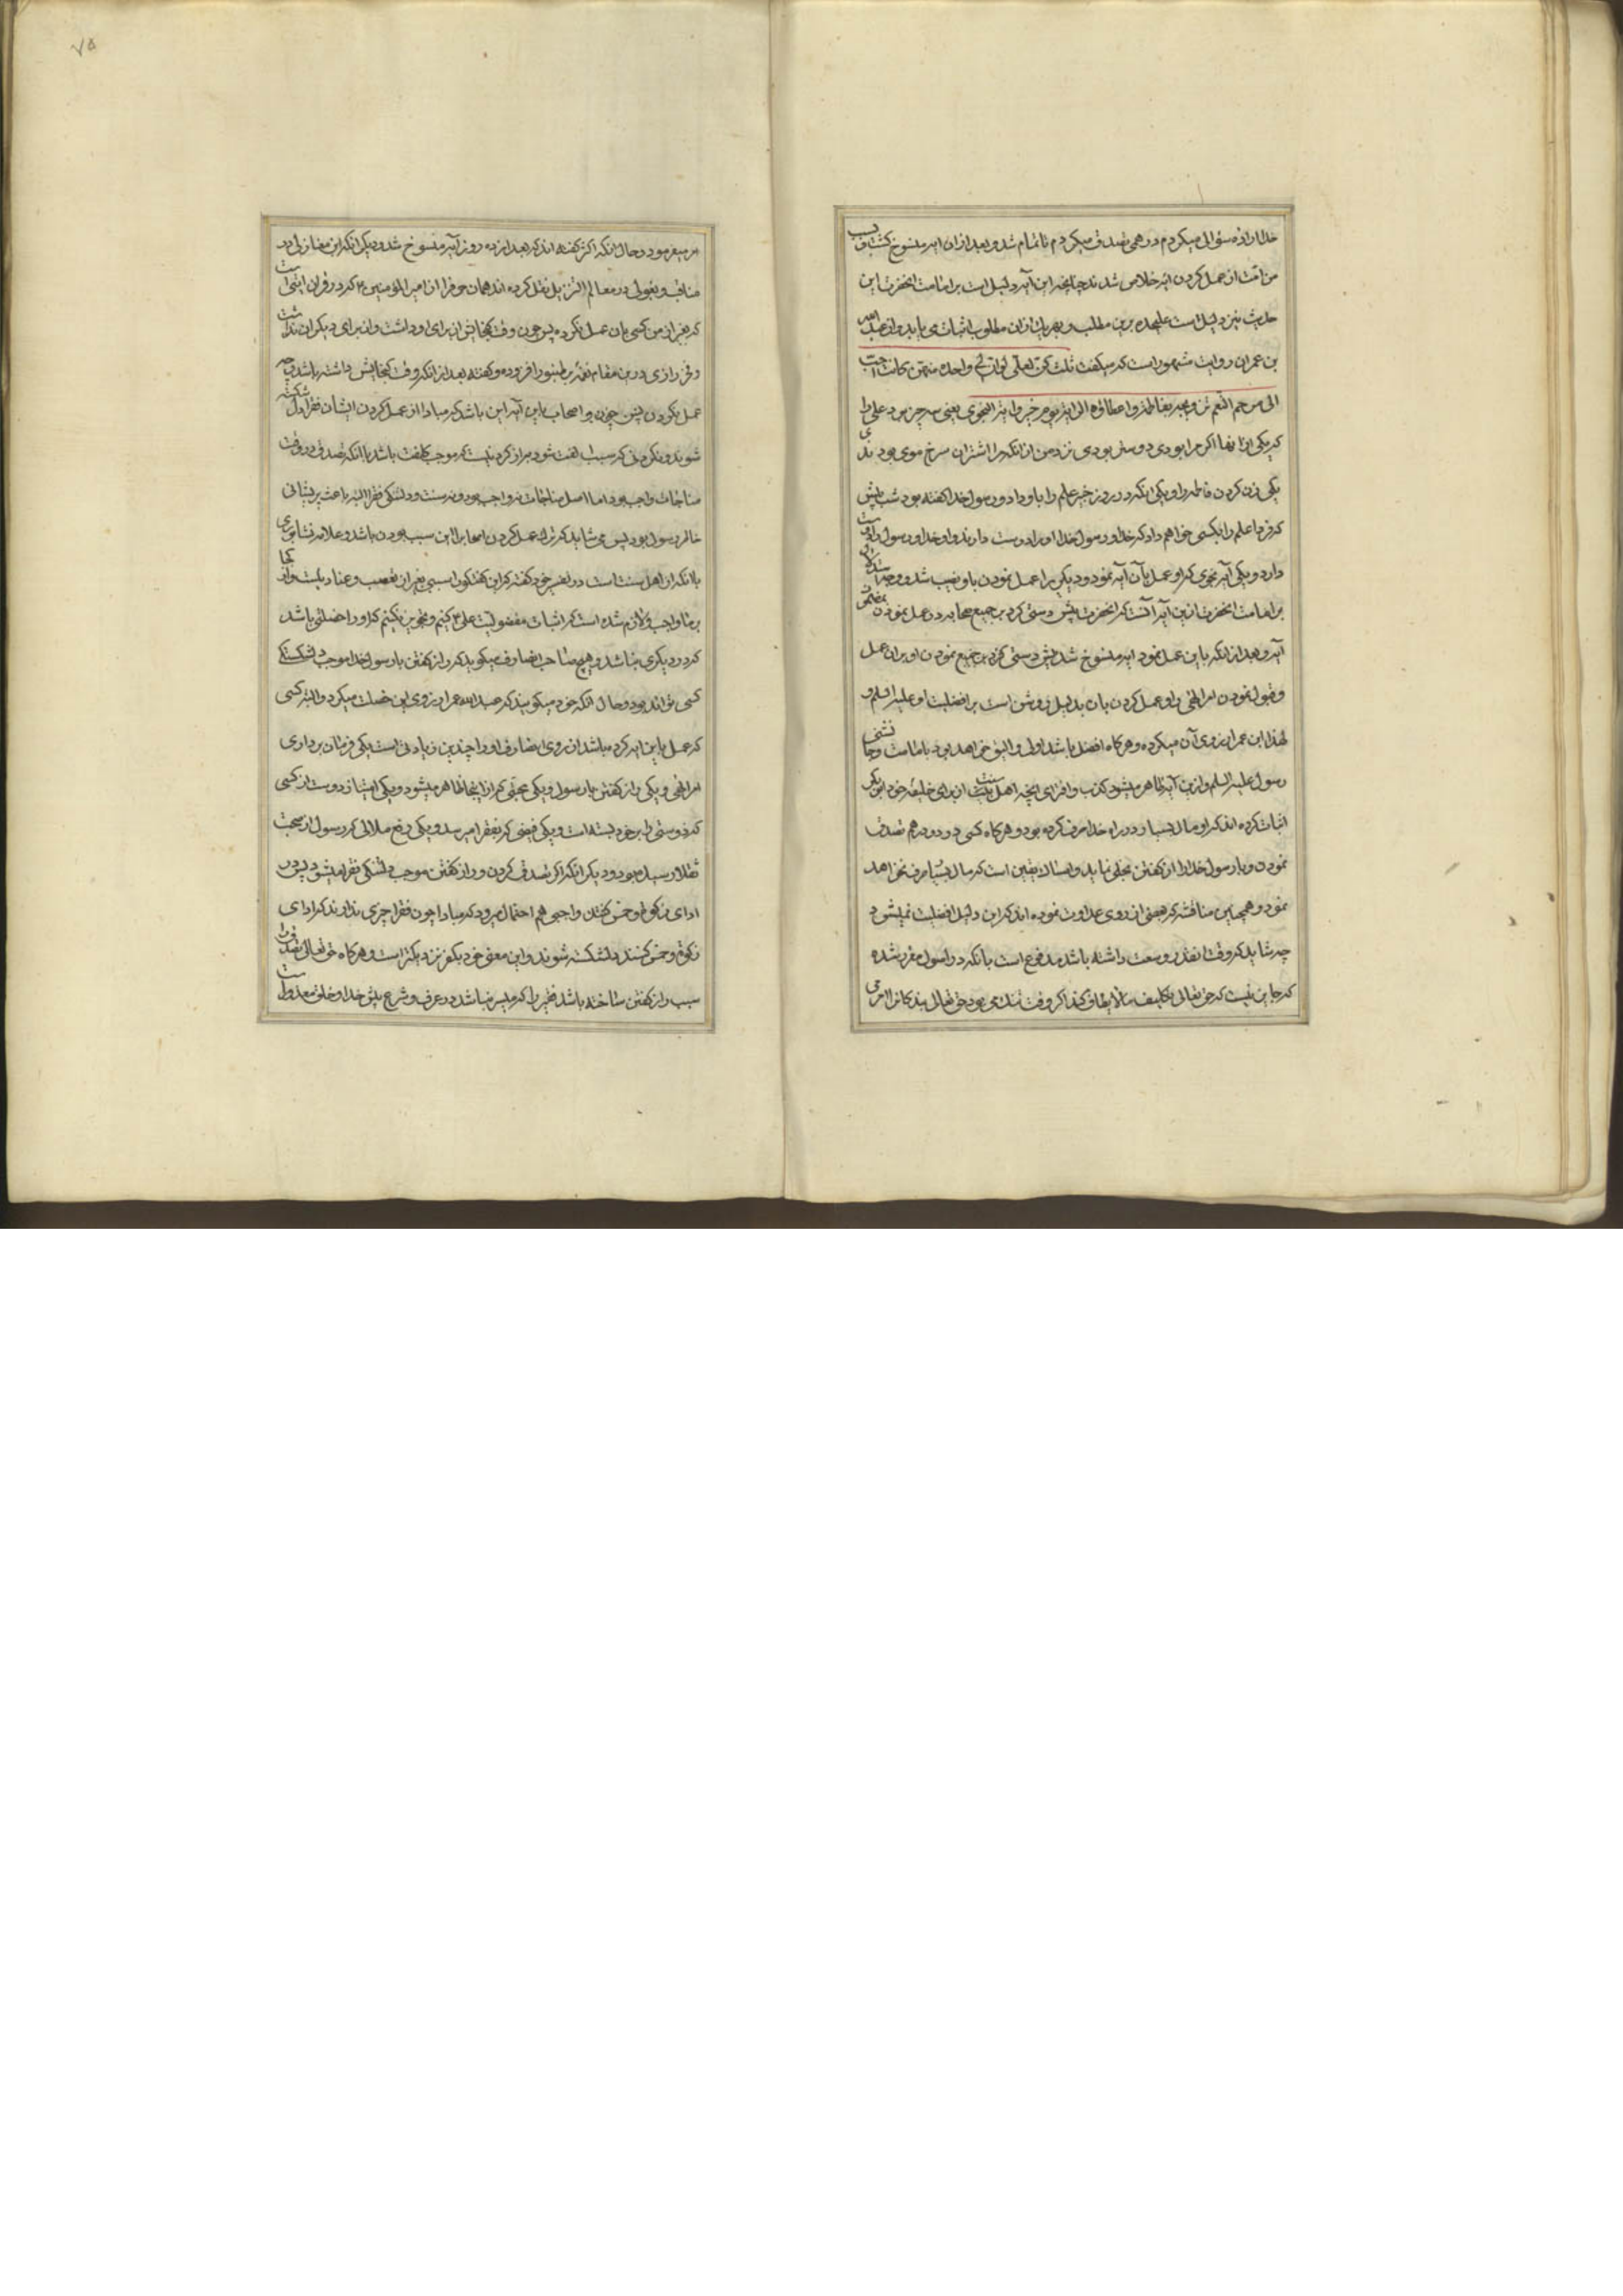 خدا اراده سؤالی میکردم درهمی تصدق میکردم تا تمام شد و بعد از ان ایه منسوخ کشت و بسبب
من امت از عمل کردن ایه خلاص شدند چنانچه این آیه دلیل است بر امامت انحضرت این
حدیث نیز دلیل است علیحده برین مطلب و بهر یك از ان مطلوب اثبات می یابد و از عبد الله
بن عمر ان روایت مشهور است که میکفت ثلث کن لعلی لو ان لی واحدة منهن کانت احب
الی من حمر النعم تزویجه بفاطمة و اعطاؤه الرایة یوم خیبر و ایة النجوی یعنی سه چیز بود علی را
که یکی از انها اکر مرا بودی دوستر بودی نزد من از انکه مرا اشتران سرخ موی بودندی
یکی زن کردن فاطمه را و یکی انکه در روز خیبر علم را باو داد و رسول خدا کفته بود شب پیش
که فردا علم را بکسی خواهم داد که خدا و رسول خدا او را دوست دارند و او خدا و رسول را دوست
دارد و یکی آیه نجوی که او عمل بآن آیه نمود و دیکری را عمل نمودن باو نصیب نشد و وجه استدلال
بر امامت انحضرت از این آیه آنست که انحضرت پیش دستی کرد بر جمیع صحابه در عمل نمودن بمضمون
آیه و بعد از انکه باین عمل نمود ایه منسوخ شد پس پیش دستی کردن بر جمیع نمودن او بر ان عمل
و قبول نمودن امر الهی را و عمل کردن بان دلیل روشن است بر افضلیت او علیه السلام و
لهذا ابن عمر ارزوی آن میکرده و هرکاه افضل باشد اولی و الیق خواهد بود بامامت و جانشینی
رسول علیه السلم و از این آیه ظاهر میشود کذب و افترای انچه اهل سنت از برای خلیفه خود ابی بکر
اثبات کرده اند که او مال بسیار در راه خدا صرف کرده بود و هرکاه کسی در دو درهم تصدق
نمودن و با رسول خدا راز کفتن بخلی نماید و امساك یقین است که مال بسیار صرف نخواهد
نمود و همچنین مناقشه که بعضی از روی عداوت نموده اند که این دلیل افضلیت نمیشود
چه شاید که وقت انقدر وسعت نداشته باشد مدفوع است بانکه در اصول مقرر شده
که جایز نیست که حق تعالی تکلیف ما لا یطاق کند اکر وقت تنك می بود حق تعالی بندکانرا امر می
امر میفرمود و حال انکه اکثر کفته اند که بعد از ده روز آیه منسوخ شد و دیکر انکه ابن مغازلی در
مناقب و بغوی در معالم التنزیل نقل کرده اند همان حرف را از امیر المؤمنین ۴ که در قران ایتی است
که بغیر از من کسی بان عمل نکرده پس چون وقت کنجایش از برای او داشت و از برای دیکران نداشت
و فخر رازی درین مقام نغمه بر طنبور افزوده و کفته بعد از انکه وقت کنجایش داشته باشد وجه
عمل نکردن و اصحاب باین آیه این باشد که مبادا از عمل کردن ایشان فقرا دل شکسته
شوند و نکردنی که سبب الفت شود بهتر از کردنیست که موجب کلفت باشد با انکه تصدق در وقت
مناجات واجب بود اما اصل مناجات نه واجب بود و نه سنت و دلتنکی فقرا البته باعث پریشانی
خاطر رسول بود پس می شاید که ترك عمل کردن اصحاب را این سبب بودن باشد و علامه نیشابوری
با انکه از اهل سنت است در تفسیر خود کفته که این کفتکو را سببی بغیر از تعصب و عناد نیست و از کجا
بر ما واجب و لازم شده است که اثبات مفضولیت علی ۴ کنیم و تجویز نکنیم که او را خصلتی باشد
که در دیکری نباشد و هیچ صاحب انصاف میکوید که راز کفتن با رسول خدا موجب دلشکستکی
کسی تواند بود و حال انکه خود میکویند که عبد الله عمر ارزوی این خصلت میکرد و البته کسی
که عمل باین ایه کرده باشد از روی انصاف او را چندین زیادتی است یکی فرمان برداری
امر الهی و یکی راز کفتن با رسول و یکی محبتی که از اینجا ظاهر میشود و یکی امتیاز دوست از کسی
که دوستی را بر خود بسته است و یکی فیضی که بفقرا میرسد و یکی رفع ملالی که رسول از صحبت
ثقلا رسیده بود و دیکر انکه اکر تصدق کردن و راز کفتن موجب دلتنکی فقرا میشود پس در
ادای زکوة و خمس کفتن واجبی هم احتمال میرود که مبادا چون فقرا چیزی ندارند که ادای
زکوة و خمس کنند دلشکسته شوند و این معنی خود بکفر نزدیکتر است و هرکاه حق تعالی تصدق را
سبب راز کفتن ساخته باشد فقیر را که میسر نباشد در عرف و شرع پیش خدا و خلق معذور است